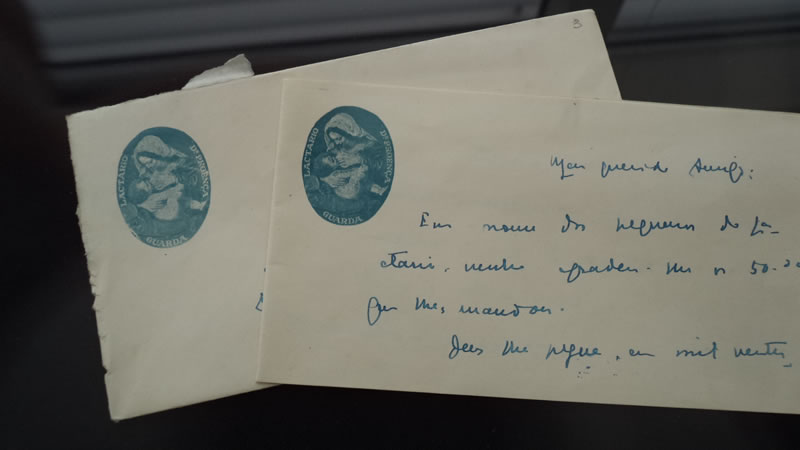 LACTÁRIO Dr PROENÇA
GUARDA
LACTÁRIO Dr PROENÇA
GUARDA
3
Meu querido Amigo:
Em nome dos pequenos do La-
ctario, venho agradecer-lhe os 50.
que lhes mandou.
Deus lhe pague, em mil